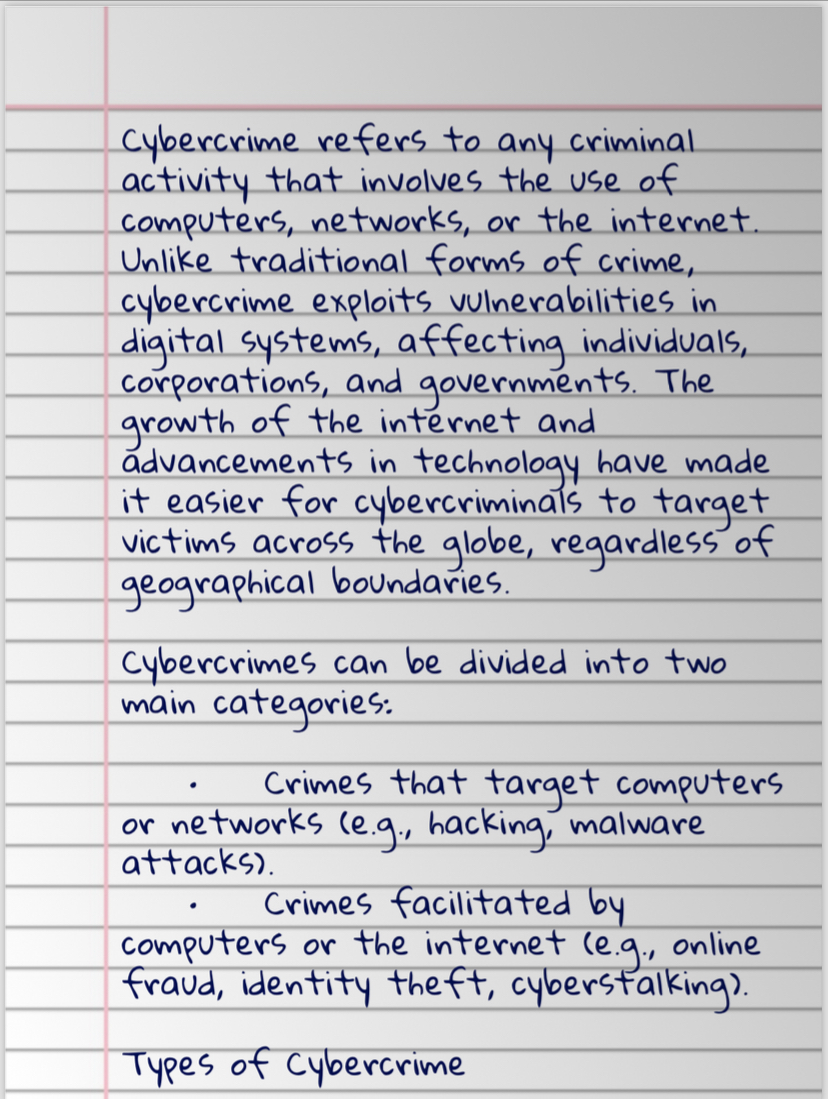 Cybercrime refers to any criminal
activity that involves the use of
computers, networks, or the internet.
Unlike traditional forms of crime,
cybercrime exploits vulnerabilities in
digital systems, affecting individuals,
corporations, and governments. The
growth of the internet and
advancements in technology have made
it easier for cybercriminals to target
victims across the globe, regardless of
geographical boundaries.
Cybercrimes can be divided into two
main categories:
• Crimes that target computers
or networks (e.g., hacking, malware
attacks).
• Crimes facilitated by
computers or the internet (e.g., online
fraud, identity theft, cyberstalking).
Types of Cybercrime